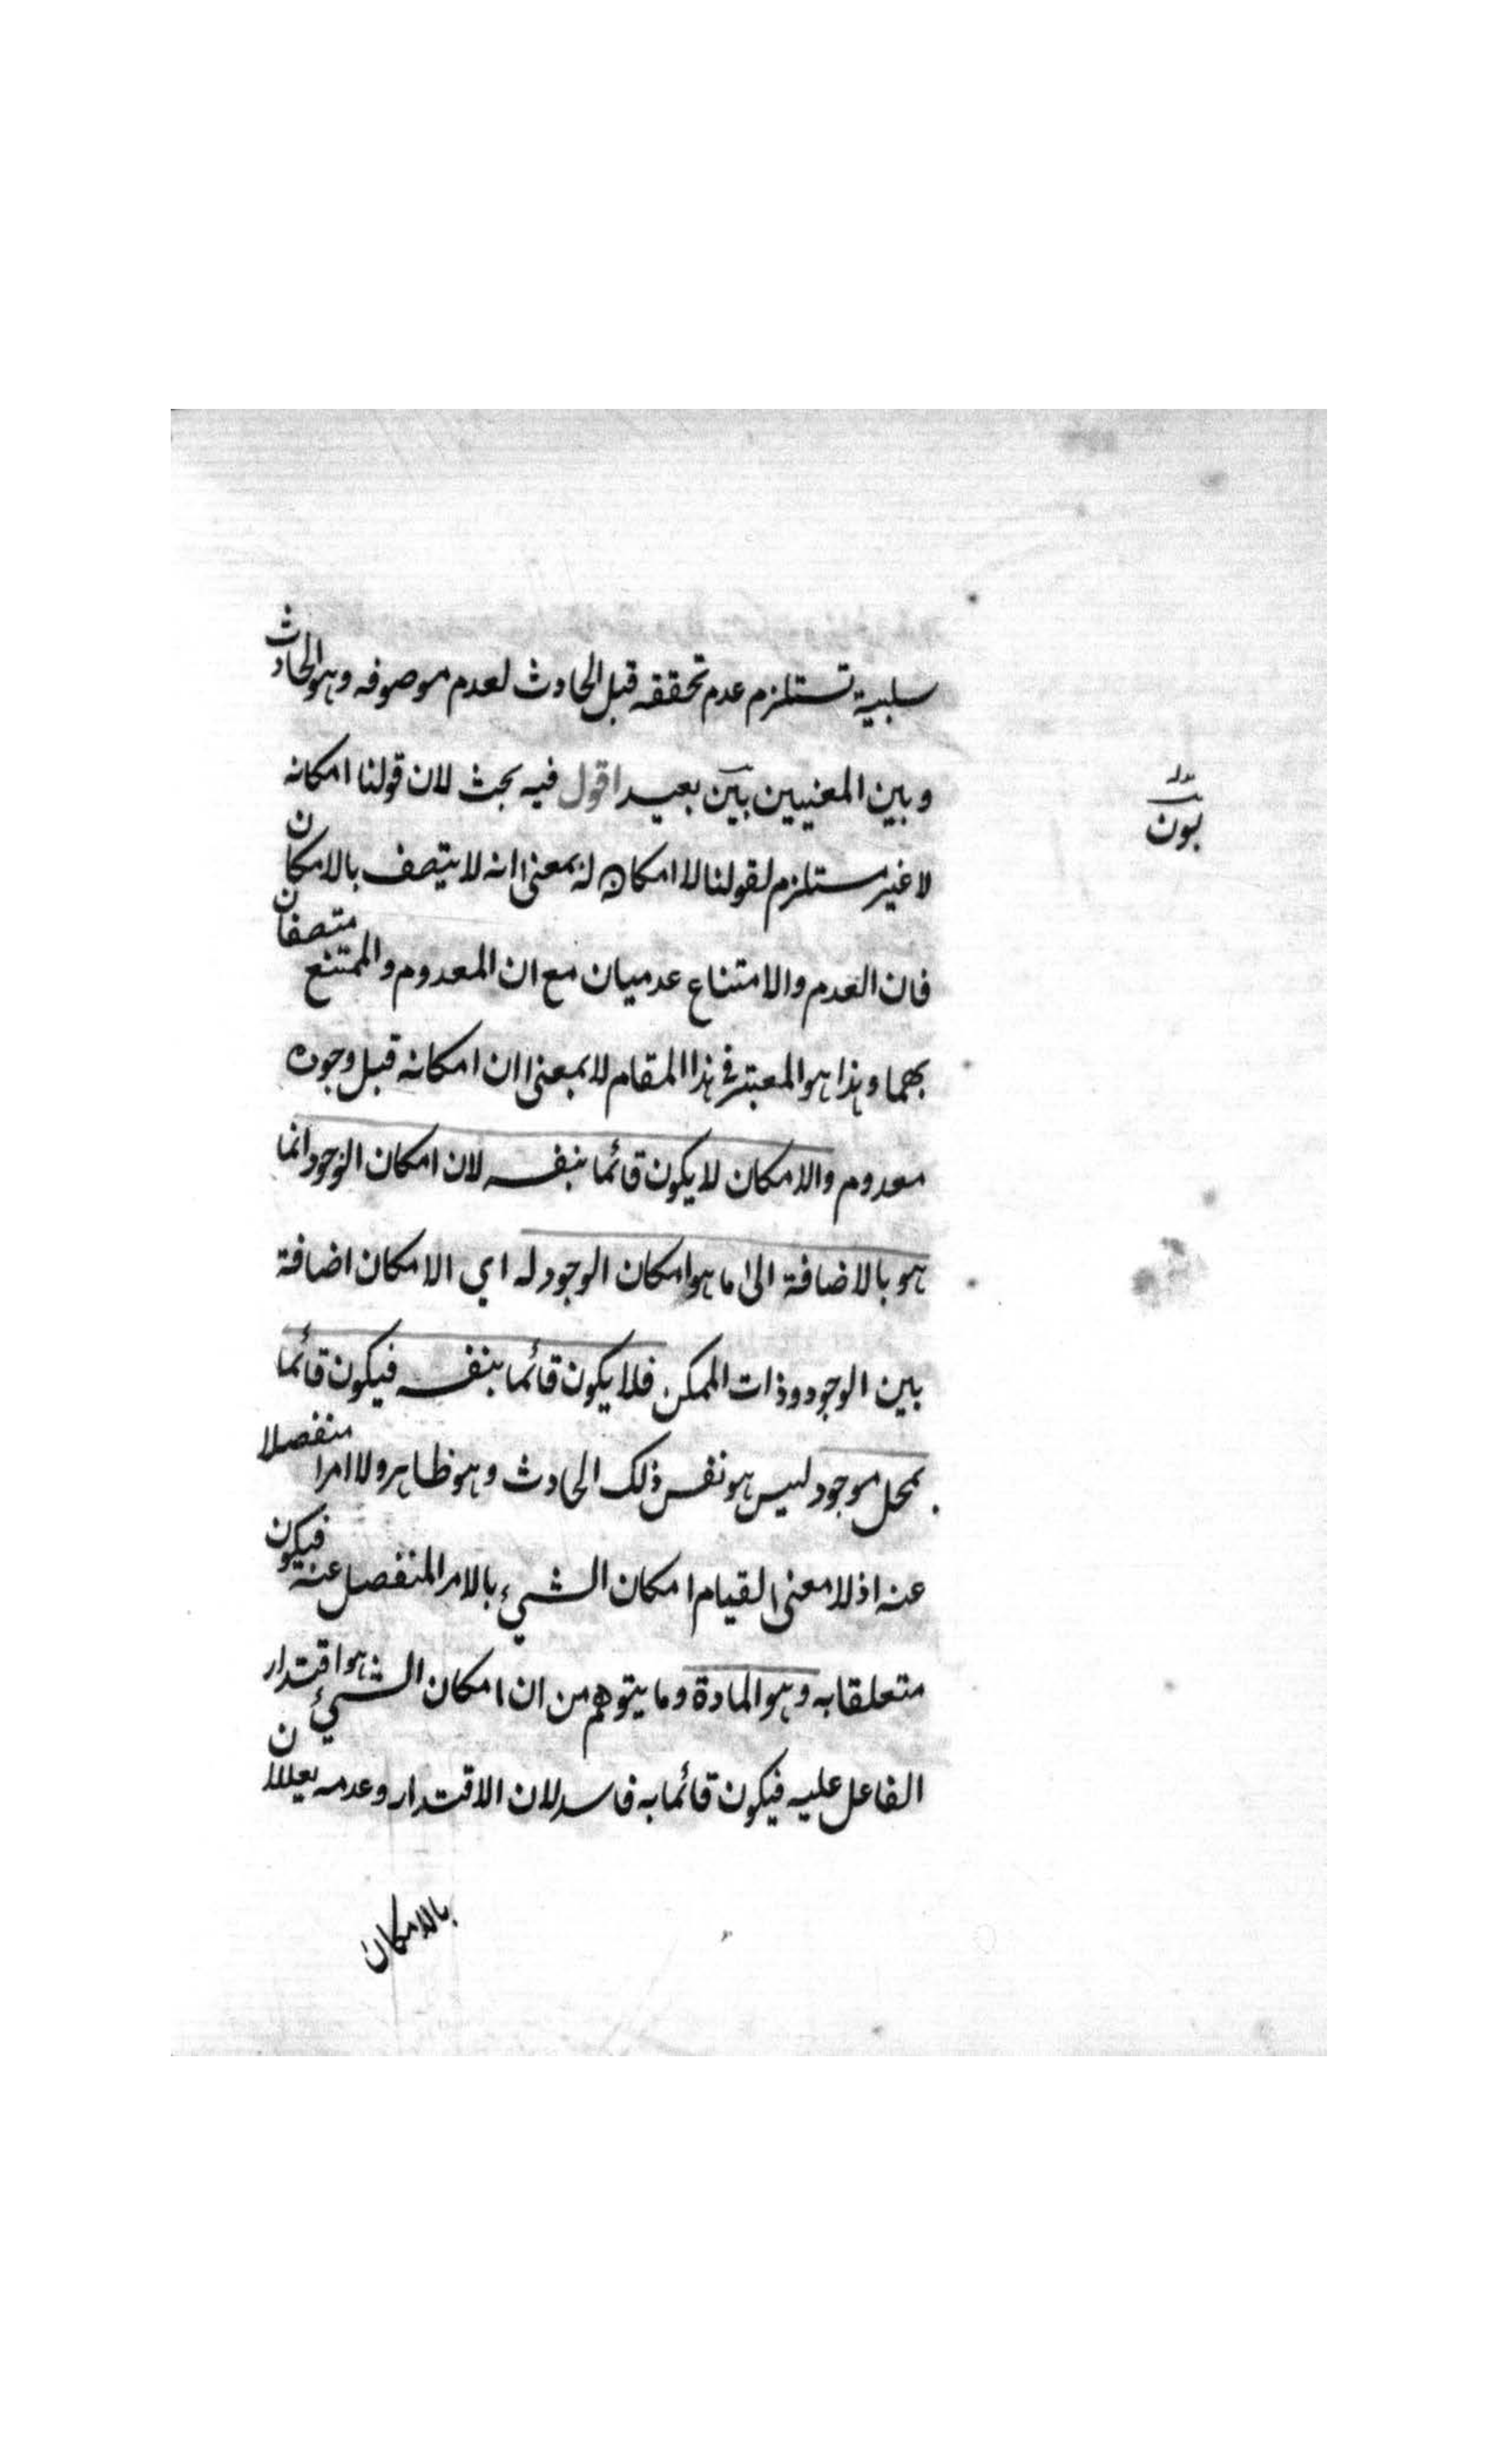 سلبية تستلزم عدم تحققه قبل الحادث لعدم موصوفه وهو الحادث
وبين المعنيين بين بعيد اقول فيه بحث لان قولنا امكانه
بون
لا غير مستلزم لقولنا لا امكان له بمعنى انه لا يتصف بالامكان
فان العدم والامتناع عدميان مع ان المعدوم والممتنع متصفان
بهما وهذا هو المعتبر في هذا المقام لا بمعنى ان امكانه قبل وجوده
معدوم والامكان لا يكون قائما بنفسه لان امكان الوجود انما
هو بالاضافة الى ما هو امكان الوجود له اي الامكان اضافة
بين الوجود وذات الممكن فلا يكون قائما بنفسه فيكون قائما
بمحل موجود ليس هو نفس ذلك الحادث وهو ظاهر ولا امرا منفصلا
عنه اذ لا معنى لقيام امكان الشيء بالامر المنفصل عنه فيكون
متعلقا به وهو المادة وما يتوهم من ان امكان الشيء هو اقتدار
الفاعل عليه فيكون قائما به فاسد لان الاقتدار وعدمه يعللان
بالامكان